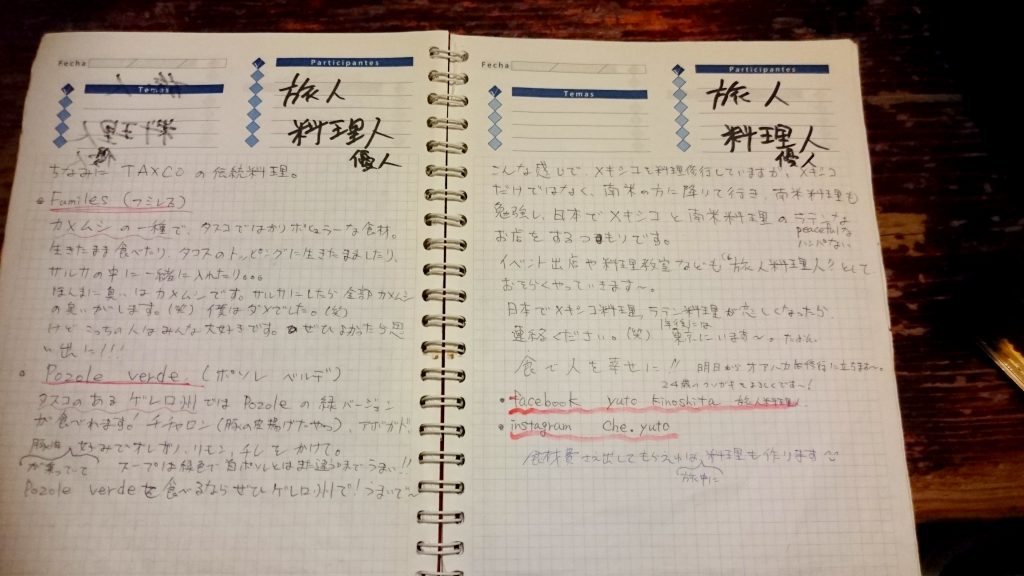 Fecha
Temas
Participantes
旅人
料理人
優人
ちなみに TAXCO の伝統料理。
Fumiles (フミレス)
カメムシの一種で、タスコではかりポピュラーな食材。
生きたまま食べたり、タコスのトッピングに生きたままのしたり、
サルサの中に一緒に入れたり。。。
ほんまに臭いはカメムシです。サルサにしたら全部カメムシ
の臭いがします。(笑) 僕はダメでした。(笑)
けどこっちの人はみんな大好きです。ぜひよかったら思
い出に!!!
Pozole verde. (ポソレ ベルデ)
タスコのあるゲレロ州では Pozole の緑バージョン
が食べれます! チチャロン (豚の皮揚げたやつ)、アボガド、
好みでオレガノ、リモン、チレをかけて。
が乗っていて
スープは緑色で白ポソレとはまた違うかまでうまい!!
Pozole verde を食べるならぜひゲレロ州で! うまいで〜
Fecha
Temas
Participantes
旅人
料理人
優人
こんな感じで、メキシコを料理修行していますが、メキシコ
だけではなく、南米の方に降りて行き、南米料理も
勉強し、日本でメキシコと南米料理のラテンな
peacefulな
ハンパない
お店をするつもりです。
イベント出店や料理教室なども"旅人料理人"として
おそらくやっていきます〜。
日本でメキシコ料理、ラテン料理が恋しくなったら、
連絡ください。(笑) 東京にいます〜。たぶん
1年後には
食で人を幸せに!! 明日からオアハカ修行に立ちます〜。
24歳のクソガキをよろしくです〜!
facebook yuto kinoshita 旅人料理人
instagram Che.yuto
食材費さえ出してもらえれば、料理も作ります〜
旅中に